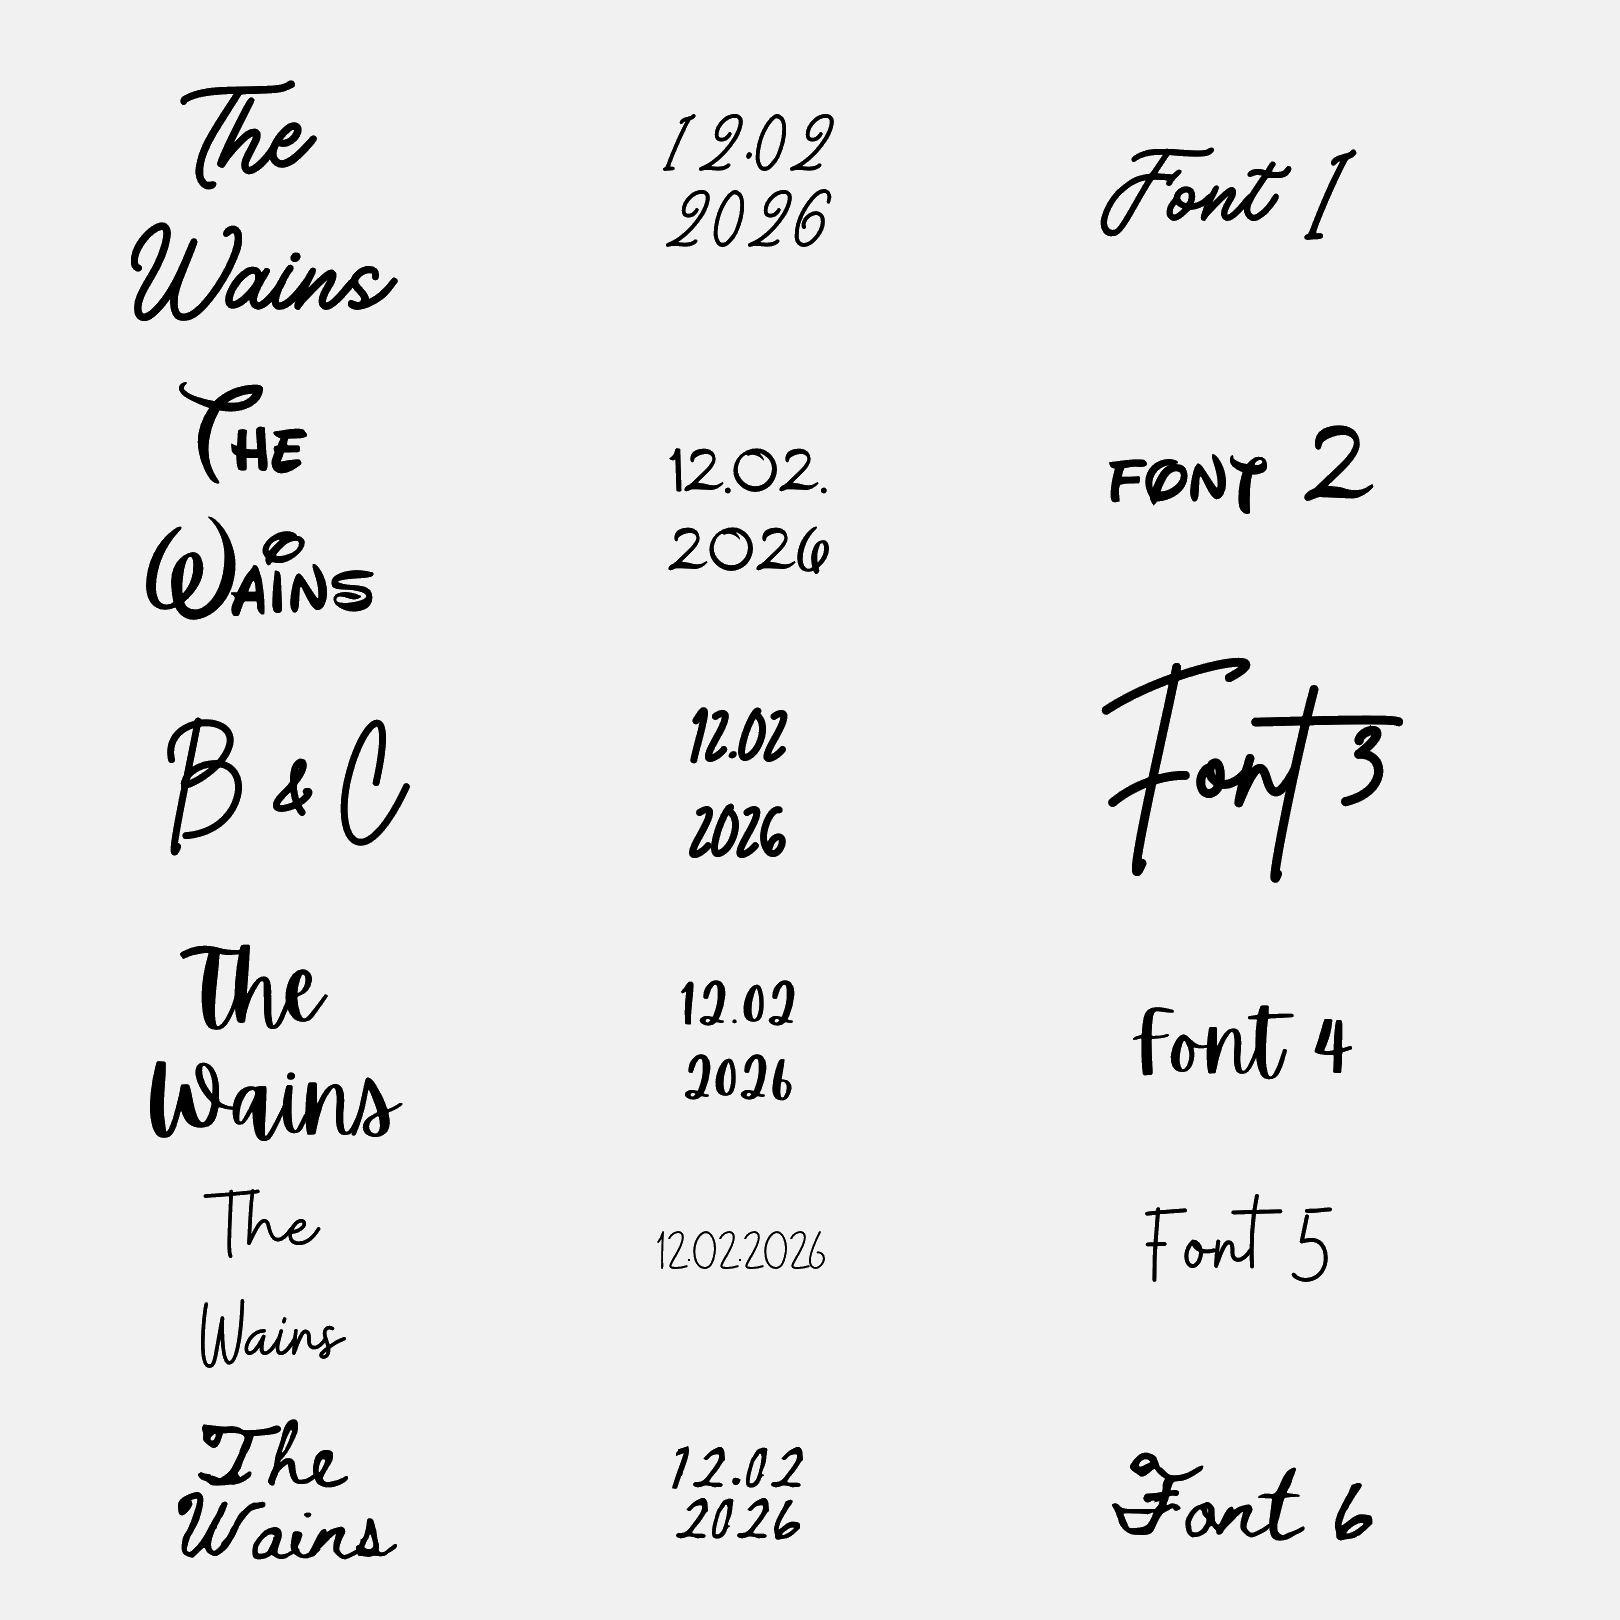 The
Wains
12.02
2026
Font 1
The
Wains
12.02.
2026
FONT 2
B & C
12.02
2026
Font 3
The
Wains
12.02
2026
Font 4
The
Wains
12.02.2026
Font 5
The
Wains
12.02
2026
Font 6